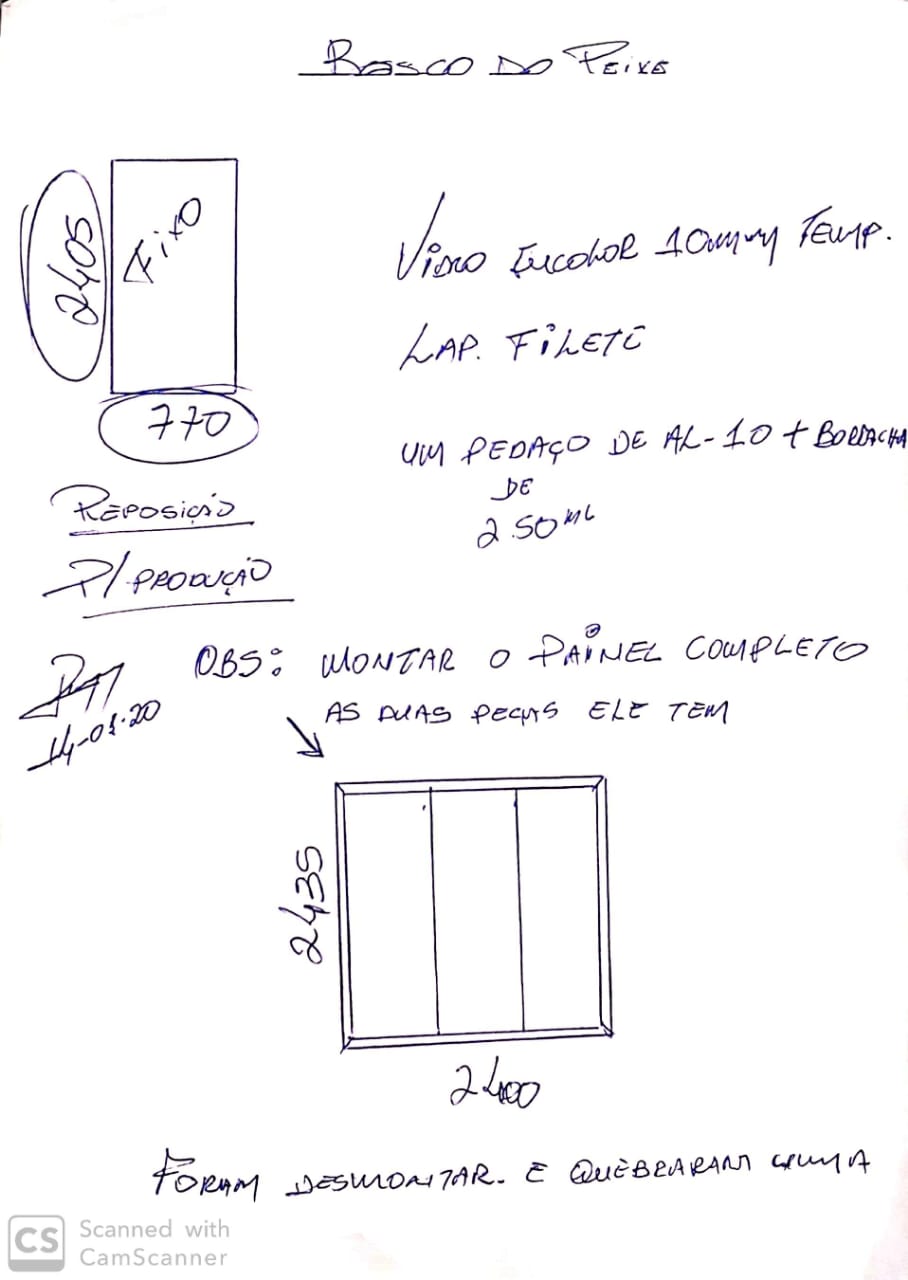 Basco do Peixe
2405
Fixo
770
Vidro Incolor 10mm Temp.
Lap. Filete
um pedaço de AL-10 + Borracha
de
250 ml
Reposição
P/ produção
14-01-20
OBS: montar o painel completo
as duas peças ele tem
2435
2400
Foram desmontar. e quebraram uma
CS Scanned with
CamScanner